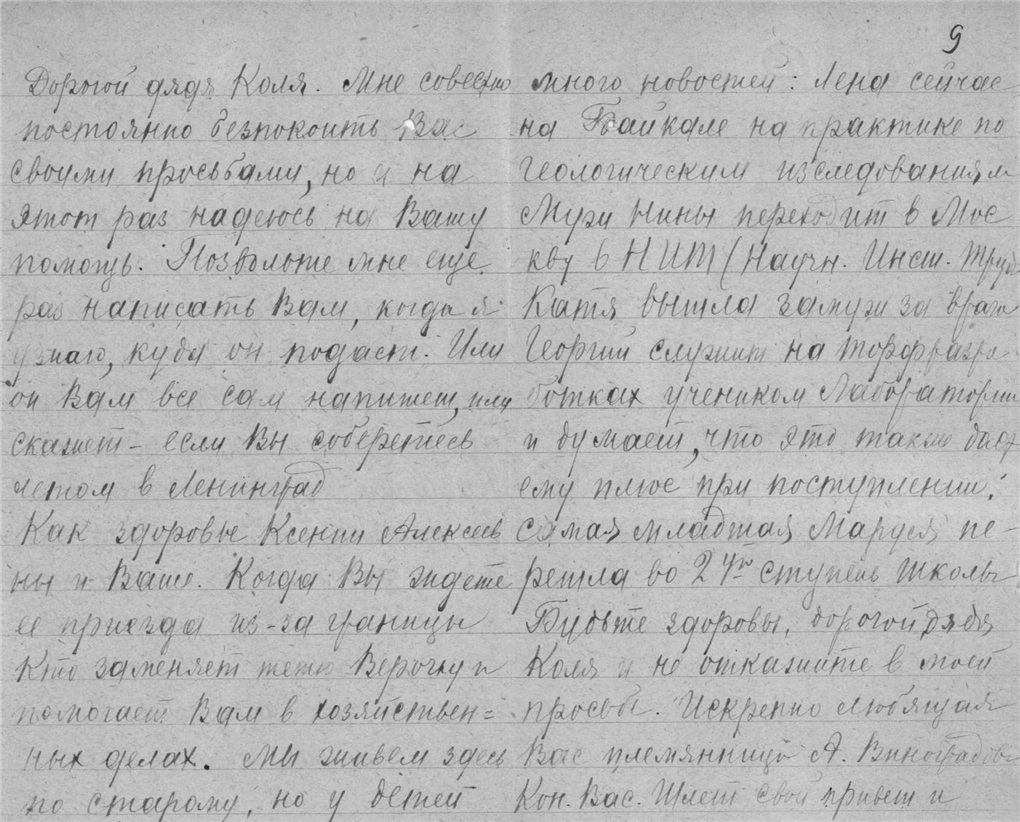 9
Дорогой дядя Коля. Мне совестно
постоянно безпокоить Вас
своими просьбами, но и на
этот раз надеюсь на Вашу
помощь. Позвольте мне еще
раз написать Вам, когда я
узнаю, куда он подаст. Или
он Вам все сам напишет, или
скажет - если Вы соберетесь
летом в Ленинград
Как здоровье Ксении Алексеев
ны и Ваше. Когда Вы ждете
ее приезда из-за границы
Кто заменяет тетю Верочку и
помогает Вам в хозяйствен=
ных делах. Мы живем здесь
по старому, но у детей
много новостей: Лена сейчас
на Байкале на практике по
геологическим изследованиям
Муж Нины переходит в Мос
кву в НИТ (Научн. Инст. Труда
Катя вышла замуж за врача
Георгий служит на торфразра
ботках учеником Лаборатории
и думает, что это также даст
ему плюс при поступлении.
Самая младшая Маруся пе-
решла во 2ую ступень школы
Будьте здоровы, дорогой дядя
Коля и не откажите в моей
просьбе. Искренно любящая
Вас племянница А. Виноградова
Кон. Вас. Шлет свой привет и